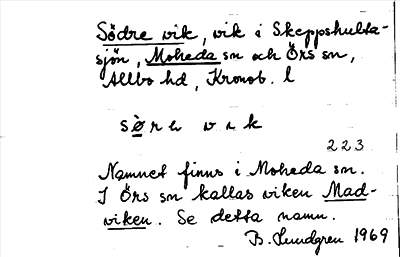 Södre vik, vik i Skeppshulta-
sjön, Moheda sn och Örs sn,
Allbo hd, Kronob. l
sø̀rɘ vik
223
Namnet finns i Moheda sn.
I Örs sn kallas viken Mad-
viken. Se detta namn.
B. Lundgren 1969